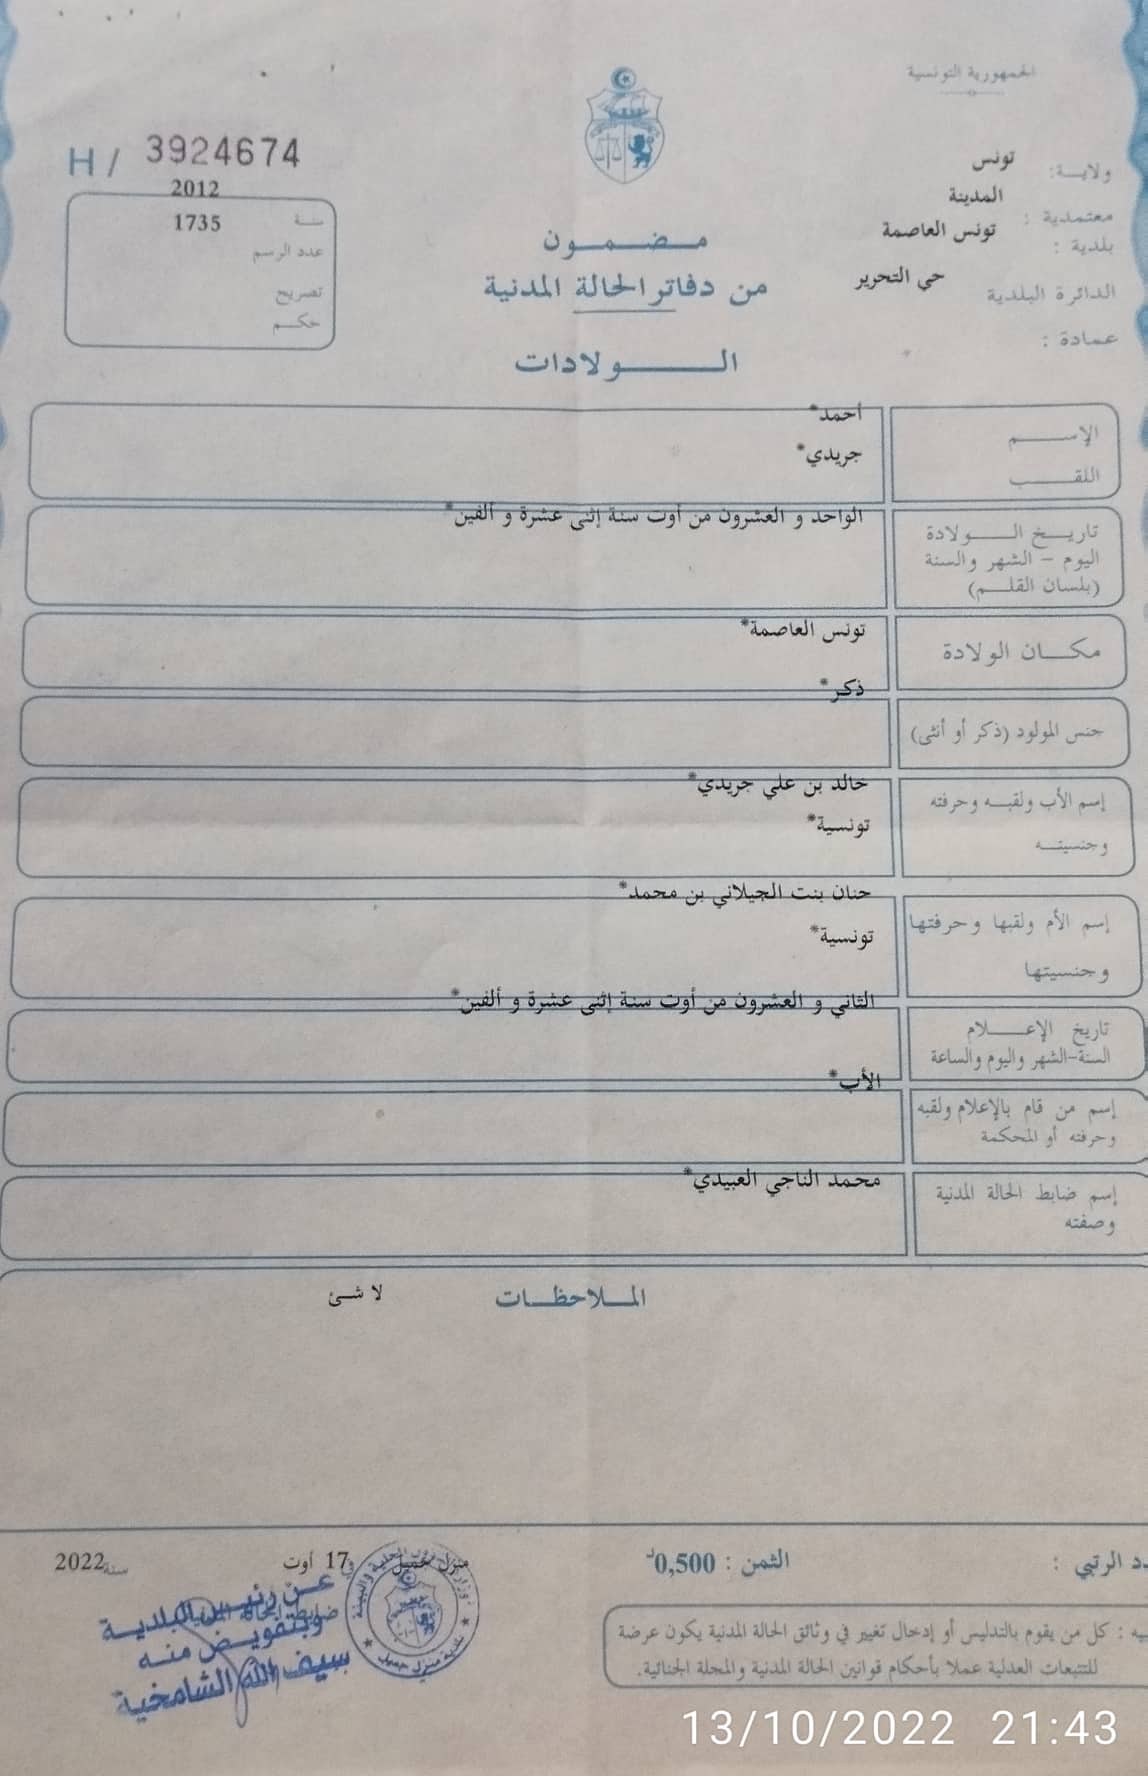 الجمهورية التونسية
H / 3924674
ولاية: تونس
معتمدية : المدينة
بلدية : تونس العاصمة
الدائرة البلدية حي التحرير
عمادة :
2012
سنة 1735
عدد الرسم
تصريح
حكم
مضمون
من دفاتر الحالة المدنية
الولادات
الإسم أحمد*
اللقب جريدي*
تاريخ الولادة الواحد و العشرون من أوت سنة إثنى عشرة و ألفين*
اليوم - الشهر والسنة
(بلسان القلم)
مكان الولادة تونس العاصمة*
جنس المولود (ذكر أو أنثى) ذكر*
إسم الأب ولقبه وحرفته خالد بن علي جريدي*
وجنسيته تونسية*
إسم الأم ولقبها وحرفتها حنان بنت الجيلاني بن محمد*
وجنسيتها تونسية*
تاريخ الإعلام الثاني و العشرون من أوت سنة إثنى عشرة و ألفين*
السنة-الشهر واليوم والساعة
إسم من قام بالإعلام ولقبه الأب*
وحرفته أو المحكمة
إسم ضابط الحالة المدنية محمد الناجي العبيدي*
وصفته
الملاحظات لا شئ
الرتبي : الثمن : 0,500د
منزل جميل في 17 أوت سنة 2022
ضابط الحالة المدنية
عن رئيس البلدية
وبتفويض منه
سيف الله الشامخية
بلدية منزل جميل
: كل من يقوم بالتدليس أو إدخال تغيير في وثائق الحالة المدنية يكون عرضة
للتتبعات العدلية عملا بأحكام قوانين الحالة المدنية والمجلة الجنائية.
13/10/2022 21:43